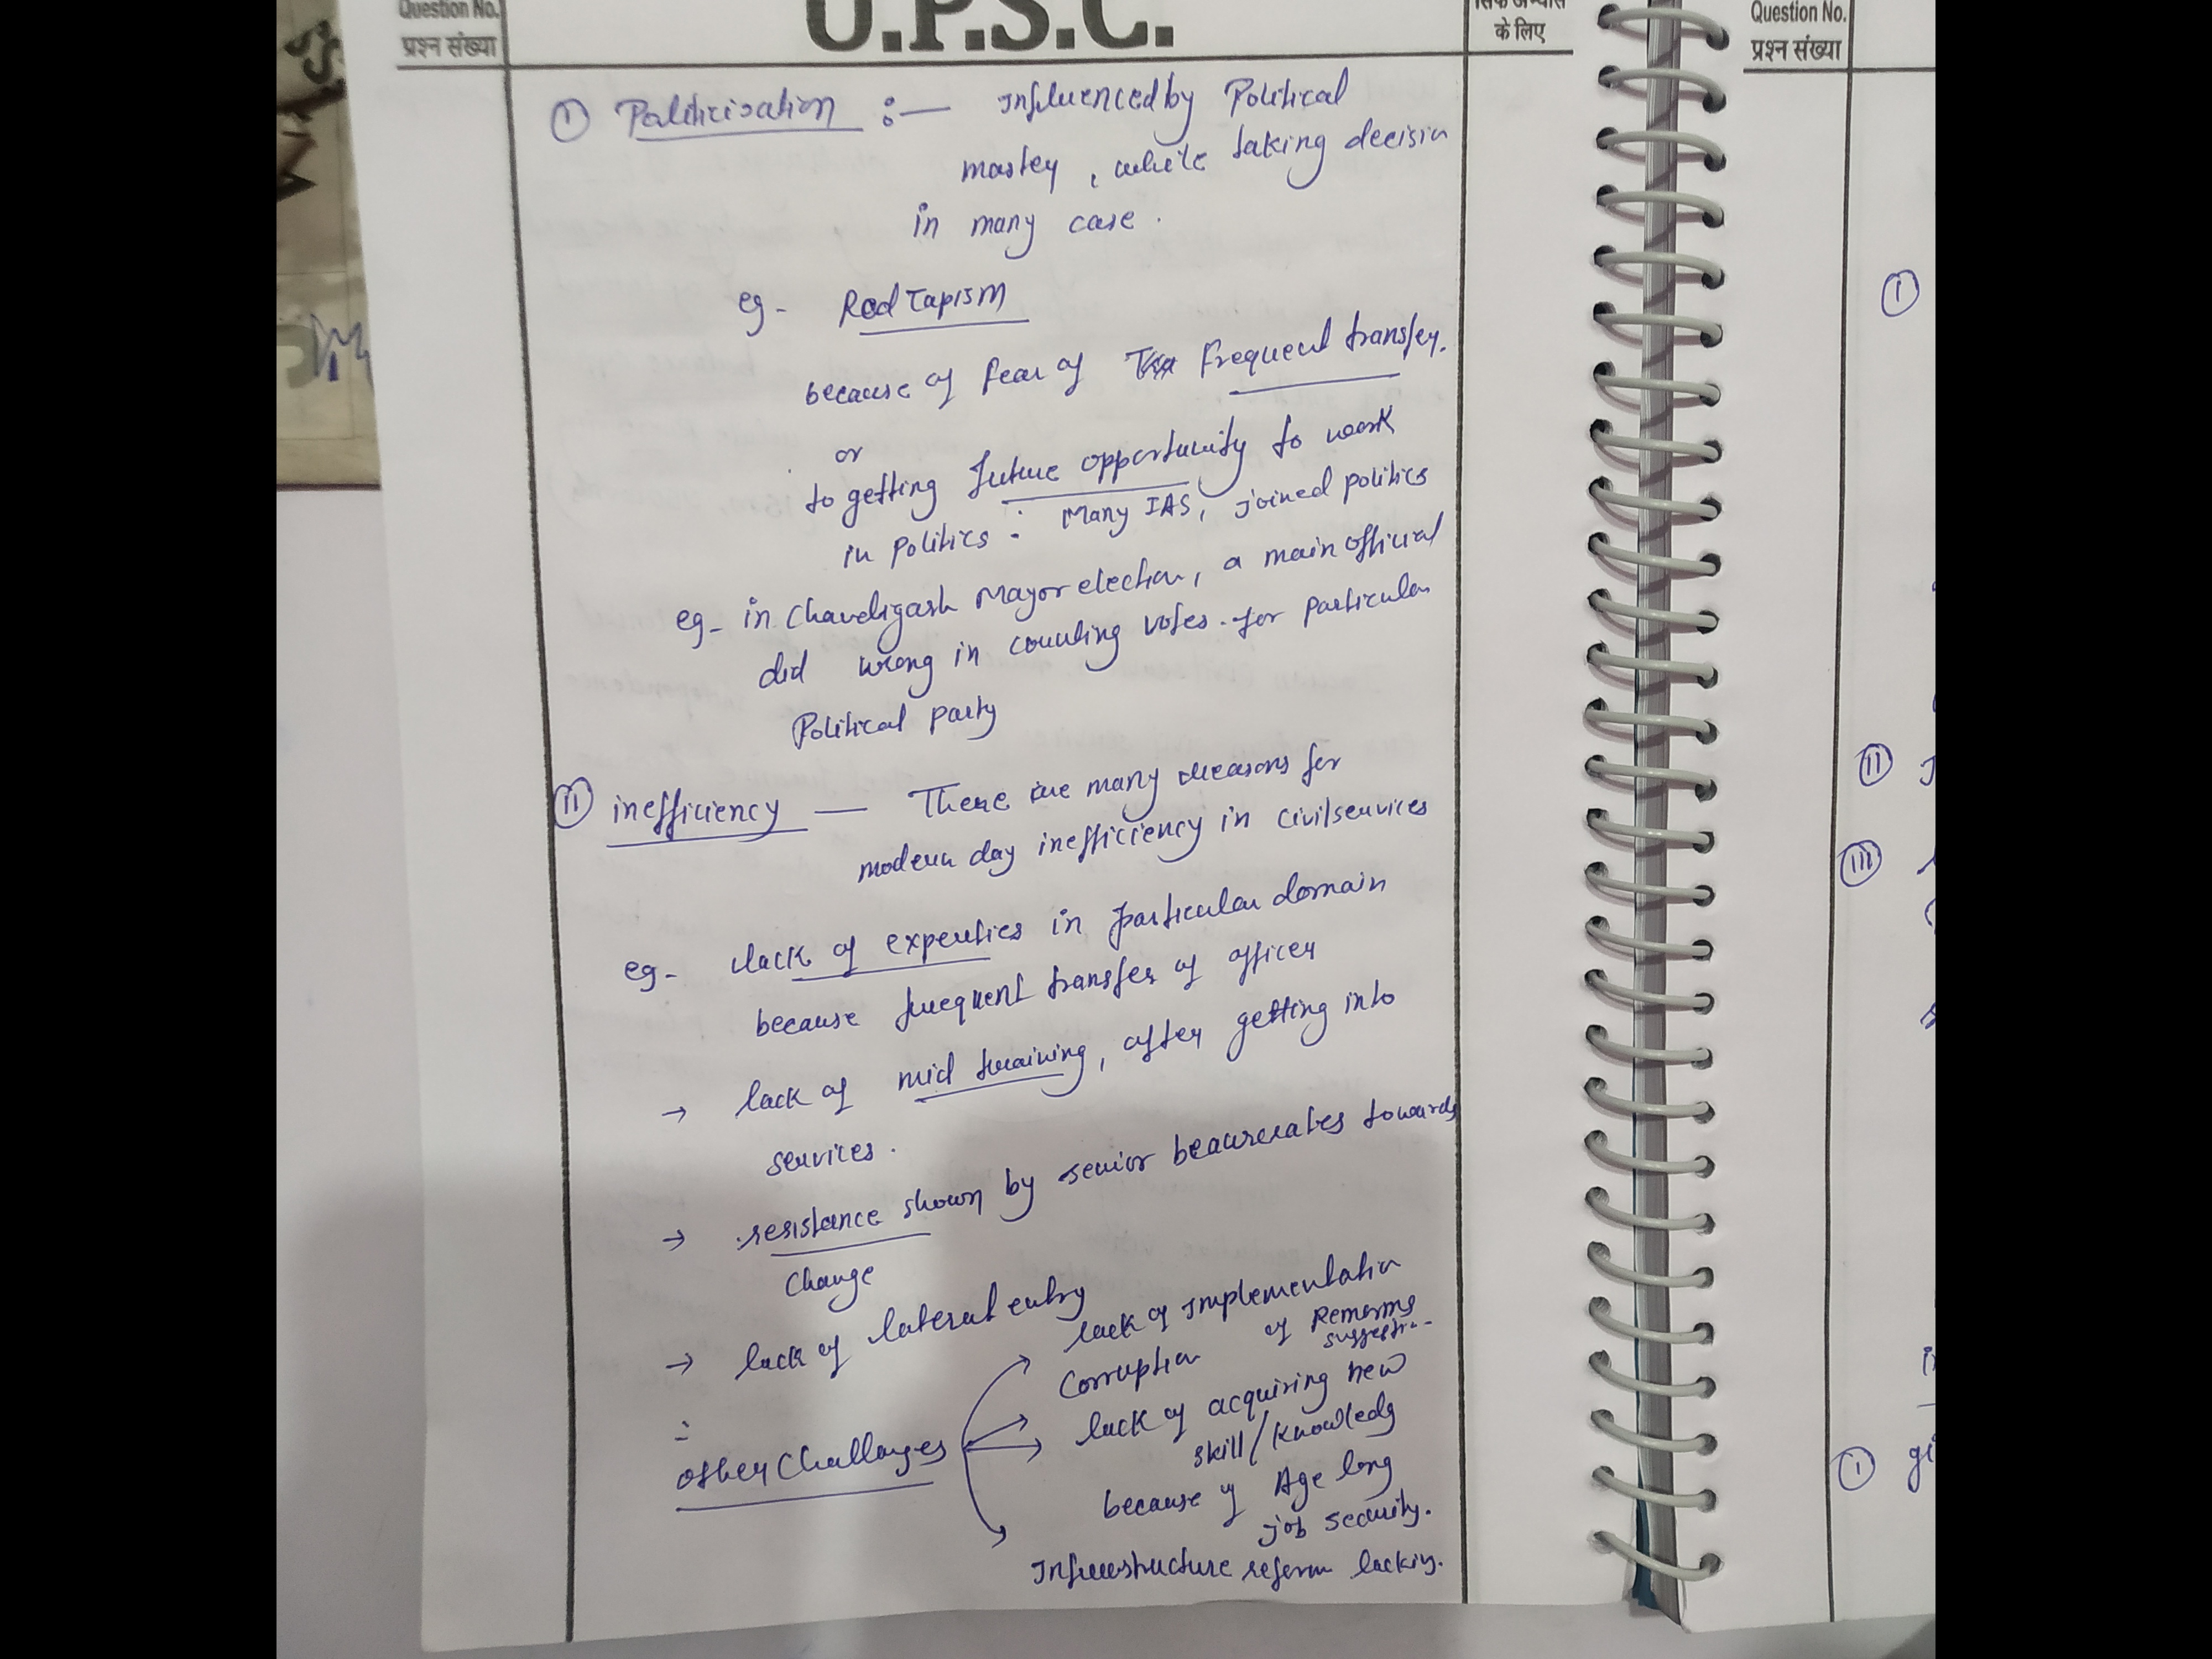 Question No.
प्रश्न संख्या
U.P.S.C.
के लिए
Question No.
प्रश्न संख्या
① Politicisation :— Influenced by Political
mastey, while taking decisin
in many case.
eg- Red Tapism
because of fear of Frequent transfey.
or
to getting future opportunity to work
in politics. Many IAS, joined politics
eg- in Chandigarh Mayor election, a main official
did wrong in counting votes. for particular
Political party
ⓘⓘ inefficiency — There are many reasons for
modern day inefficiency in civilservices
eg- lack of experties in particular domain
because frequent transfer of officer
→ lack of mid training, after getting into
services.
→ resistance shown by senior beaurerates towards
Change
→ lack of lateral entry
other Challenges
lack of Implementatin
of Remorms
Corruption
lack of acquiring new
skill/Knowledg
because of Age long
job security.
Infrastructure reform lacking.
①
ⓘⓘ
ⓘⓘⓘ
① gi